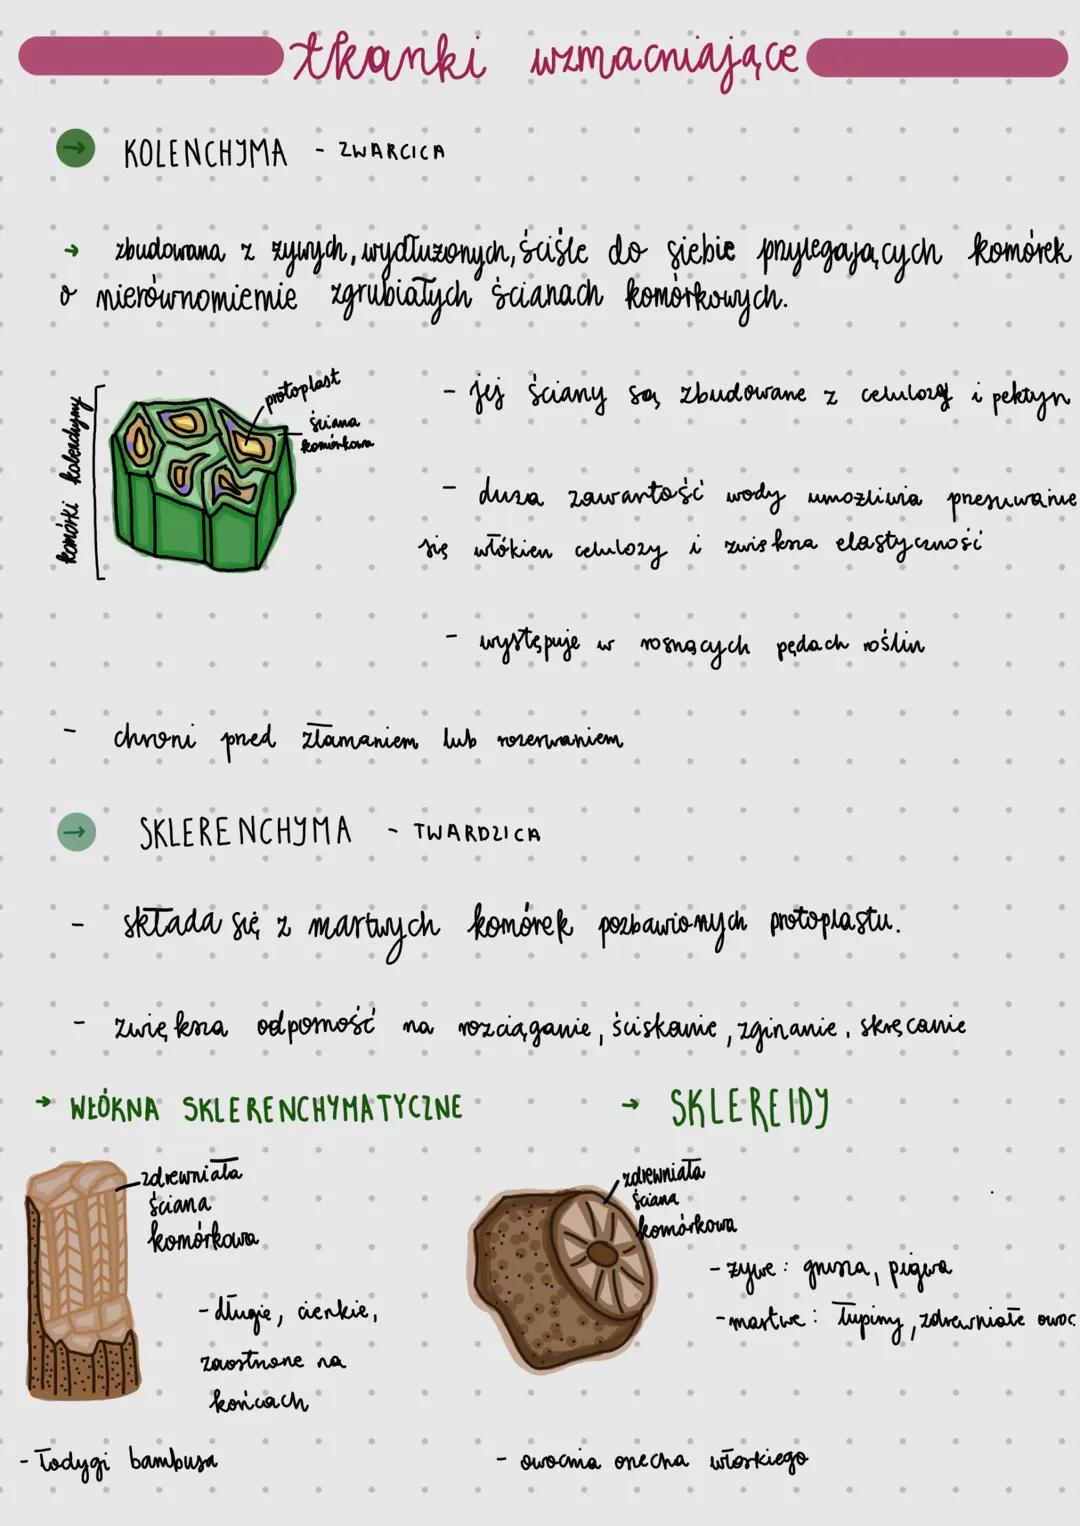 tkanki wzmacniające
→ KOLENCHYMA - ZWARCICA
→ zbudowana z żywych, wydłużonych, ściśle do siebie przylegających komórek
o nierównomiernie zgrubiałych ścianach komórkowych.
komórki kolenchymy
protoplast
ściana
komórkowa
- jej ściany są zbudowane z celulozy i pektyn
- duża zawartość wody umożliwia przesuwanie
się włókien celulozy i zwiększa elastyczność
- występuje w rosnących pędach roślin
- chroni przed złamaniem lub rozerwaniem
→ SKLERENCHYMA - TWARDZICA
- składa się z martwych komórek pozbawionych protoplastu.
- zwiększa odporność na rozciąganie, ściskanie, zginanie, skręcanie
→ WŁÓKNA SKLERENCHYMATYCZNE
zdrewniała
ściana
komórkowa
- długie, cienkie,
zaostrzone na
końcach
- łodygi bambusa
→ SKLEREIDY
zdrewniała
ściana
komórkowa
- żywe: grusza, pigwa
- martwe: łupiny, zdrewniałe owoc
- owocnia orzecha włoskiego